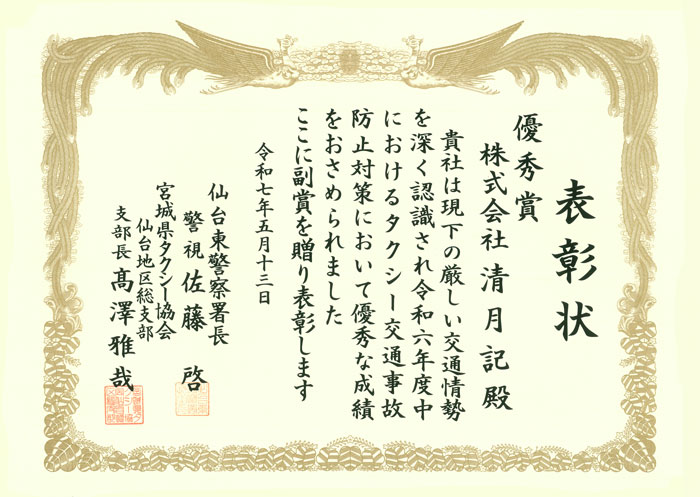 表彰状
優秀賞
株式会社 清月記殿
貴社は現下の厳しい交通情勢
を深く認識され令和六年度中
におけるタクシー交通事故
防止対策において優秀な成績
をおさめられました
ここに副賞を贈り表彰します
令和七年五月十三日
仙台東警察署長
警視 佐藤 啓
宮城県タクシー協会
仙台地区総支部
支部長 髙澤雅哉